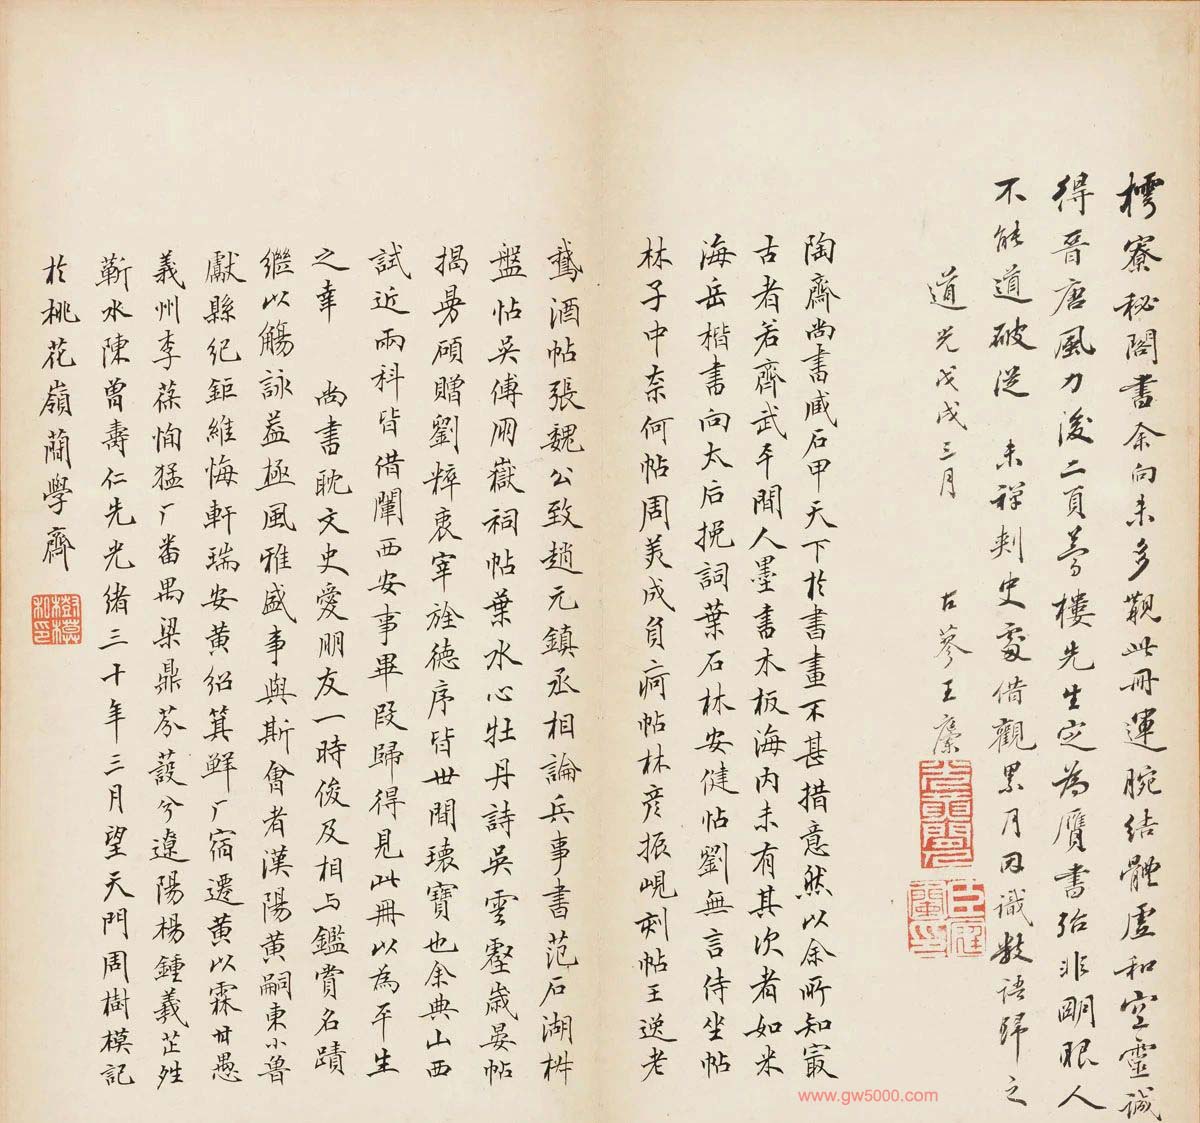 樗寮秘閣書余向未多觀此冊運腕結體虛和空靈誠
得晉唐風力後二頁夢樓先生定為贗書殆非明眼人
不能道破從 未禪刺史處借觀累月因識數語歸之
道光戊戌三月 古蓼王
陶齋尚書臧石甲天下於書畫不甚措意然以余所知寂
古者若齊武平間人墨書木板海内未有其次者如米
海岳楷書向太后挽詞葉石林安健帖劉無言侍坐帖
林子中奈何帖周美成負疴帖林彥振峴刻帖王逸老
鵞酒帖張魏公致趙元鎮丞相論兵事書范石湖栟
盤帖吳傅朋嶽祠帖葉水心牡丹詩吳雲壑歲晏帖
揭曼碩贈劉粹衷宰旌德序皆世聞瓌寶也余典山西
試近兩科皆借闈西安事畢段歸得見此冊以為平生
之幸 尚書眈文史愛朋友一時俊及相与鑑賞名蹟
繼以觴詠益極風雅盛事與斯會者漢陽黃嗣東小魯
獻縣紀鉅維悔軒瑞安黃紹箕鮮厂宿遷黃以霖甘愚
義州李葆恂猛厂番禺梁鼎芬葰兮遼陽楊鍾羲芷甡
蘄水陳曾壽仁先光緒三十年三月望天門周樹模記
於桃花嶺蘭學齋
周樹模印
www.gw5000.com